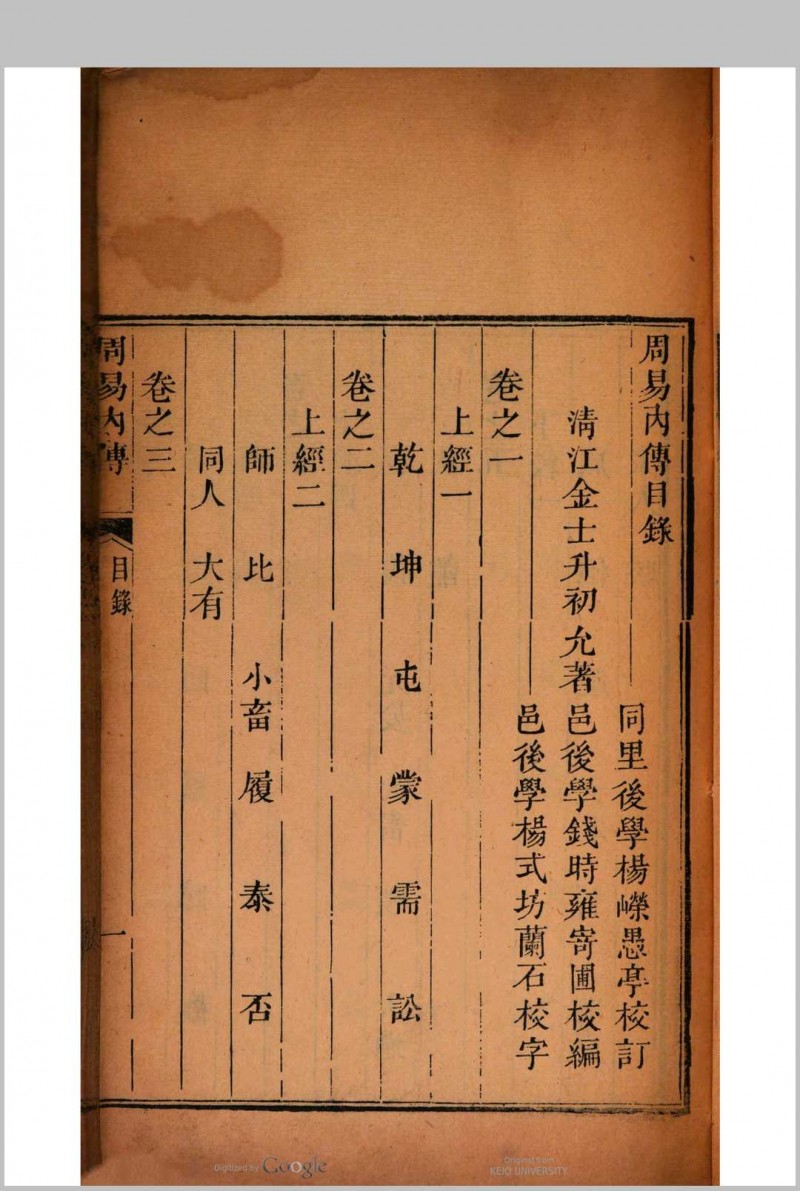 周易内傳目錄
同里後學楊嶸愚亭校訂
清江金士升初允著
邑後學錢時雍寄圃校編
邑後學楊式坊蘭石校字
卷之一
上經一
乾 坤 屯 蒙 需 訟
卷之二
上經二
師 比 小畜 履 泰 否
同人 大有
卷之三
周易内傳
目錄
一
Digitized by Google
Original from
KEIO UNIVERSITY